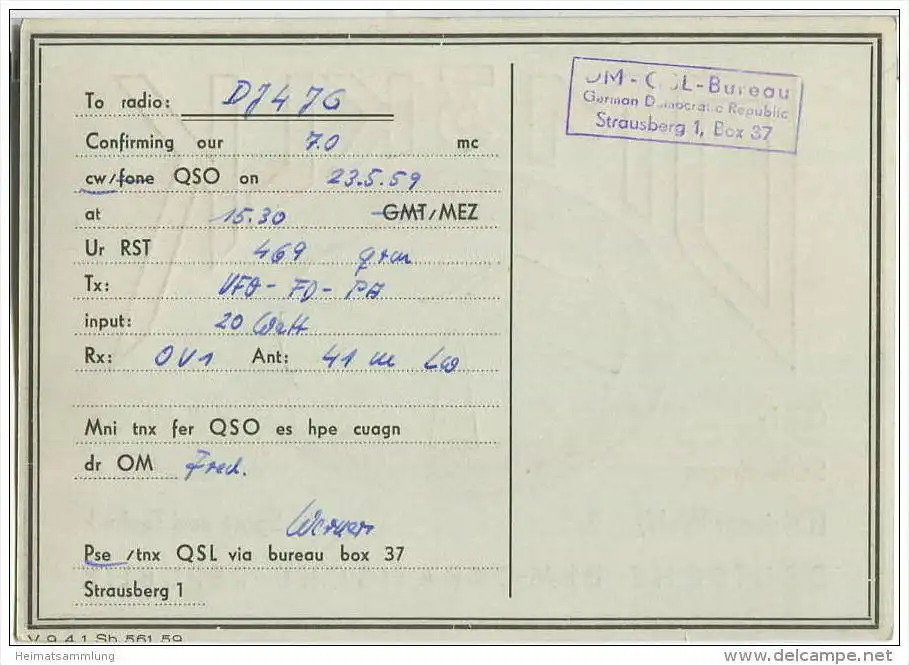 To radio: DJ4JG
Confirming our 7.0 mc
cw/fone QSO on 23.5.59
at 15.30 GMT/MEZ
Ur RST 469 qrm
Tx: VFO - FD - PA
input: 20 Watt
Rx: OV1 Ant: 41 m LW
Mni tnx fer QSO es hpe cuagn
dr OM Fred.
Werner
Pse/tnx QSL via bureau box 37
Strausberg 1
V 9 4 1 Sb 561 59
DM-QSL-Bureau
German Democratic Republic
Strausberg 1, Box 37
Heimatsammlung
www.delcampe.net